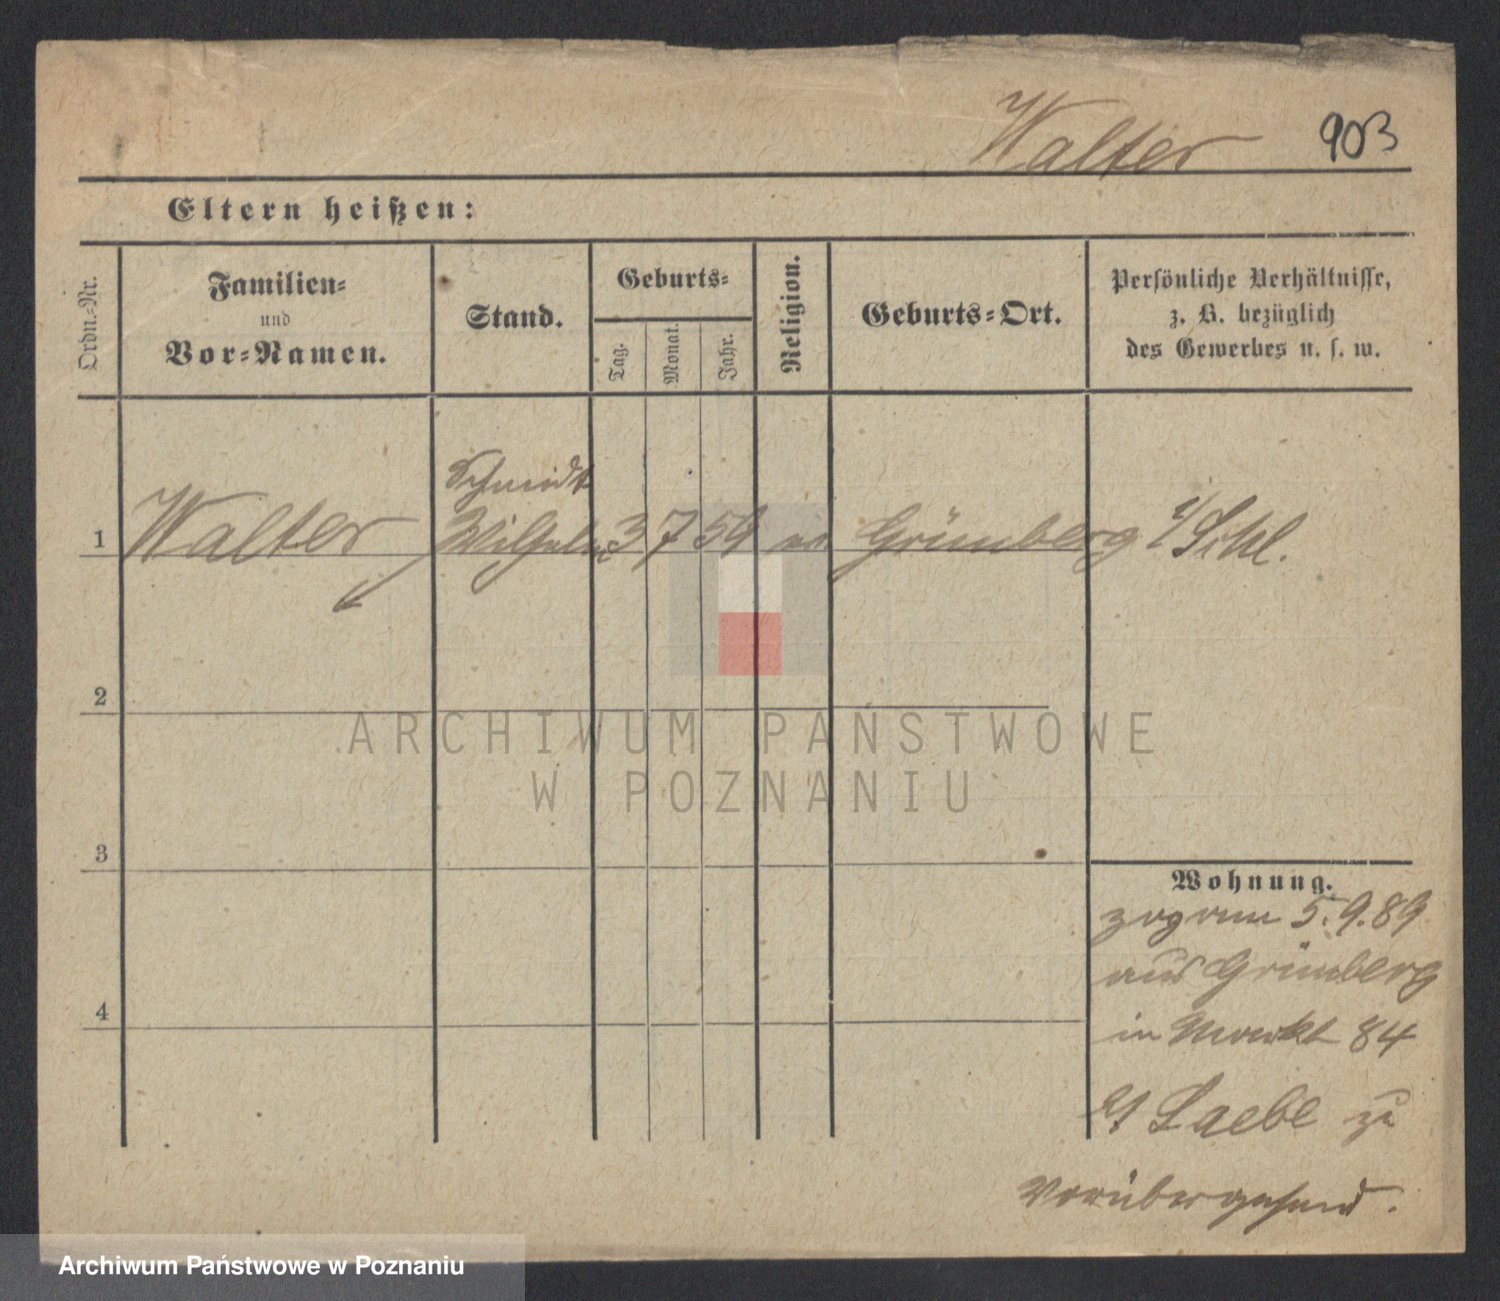 Walter 903
Eltern heißen:
Ordn.-Nr.
Familien-
und
Vor-Namen.
Stand.
Geburts-
Tag.
Monat.
Jahr.
Religion.
Geburts-Ort.
Persönliche Verhältnisse,
z. B. bezüglich
des Gewerbes u. s. w.
Schmidt
1 Walter Wilhelm 3 7 59 ev Grünberg i/Schl.
2
3
4
Wohnung.
zog am 5.9.89
aus Grünberg
in Markt 84
zu
vorübergehend.
ARCHIWUM PAŃSTWOWE
W POZNANIU
Archiwum Państwowe w Poznaniu